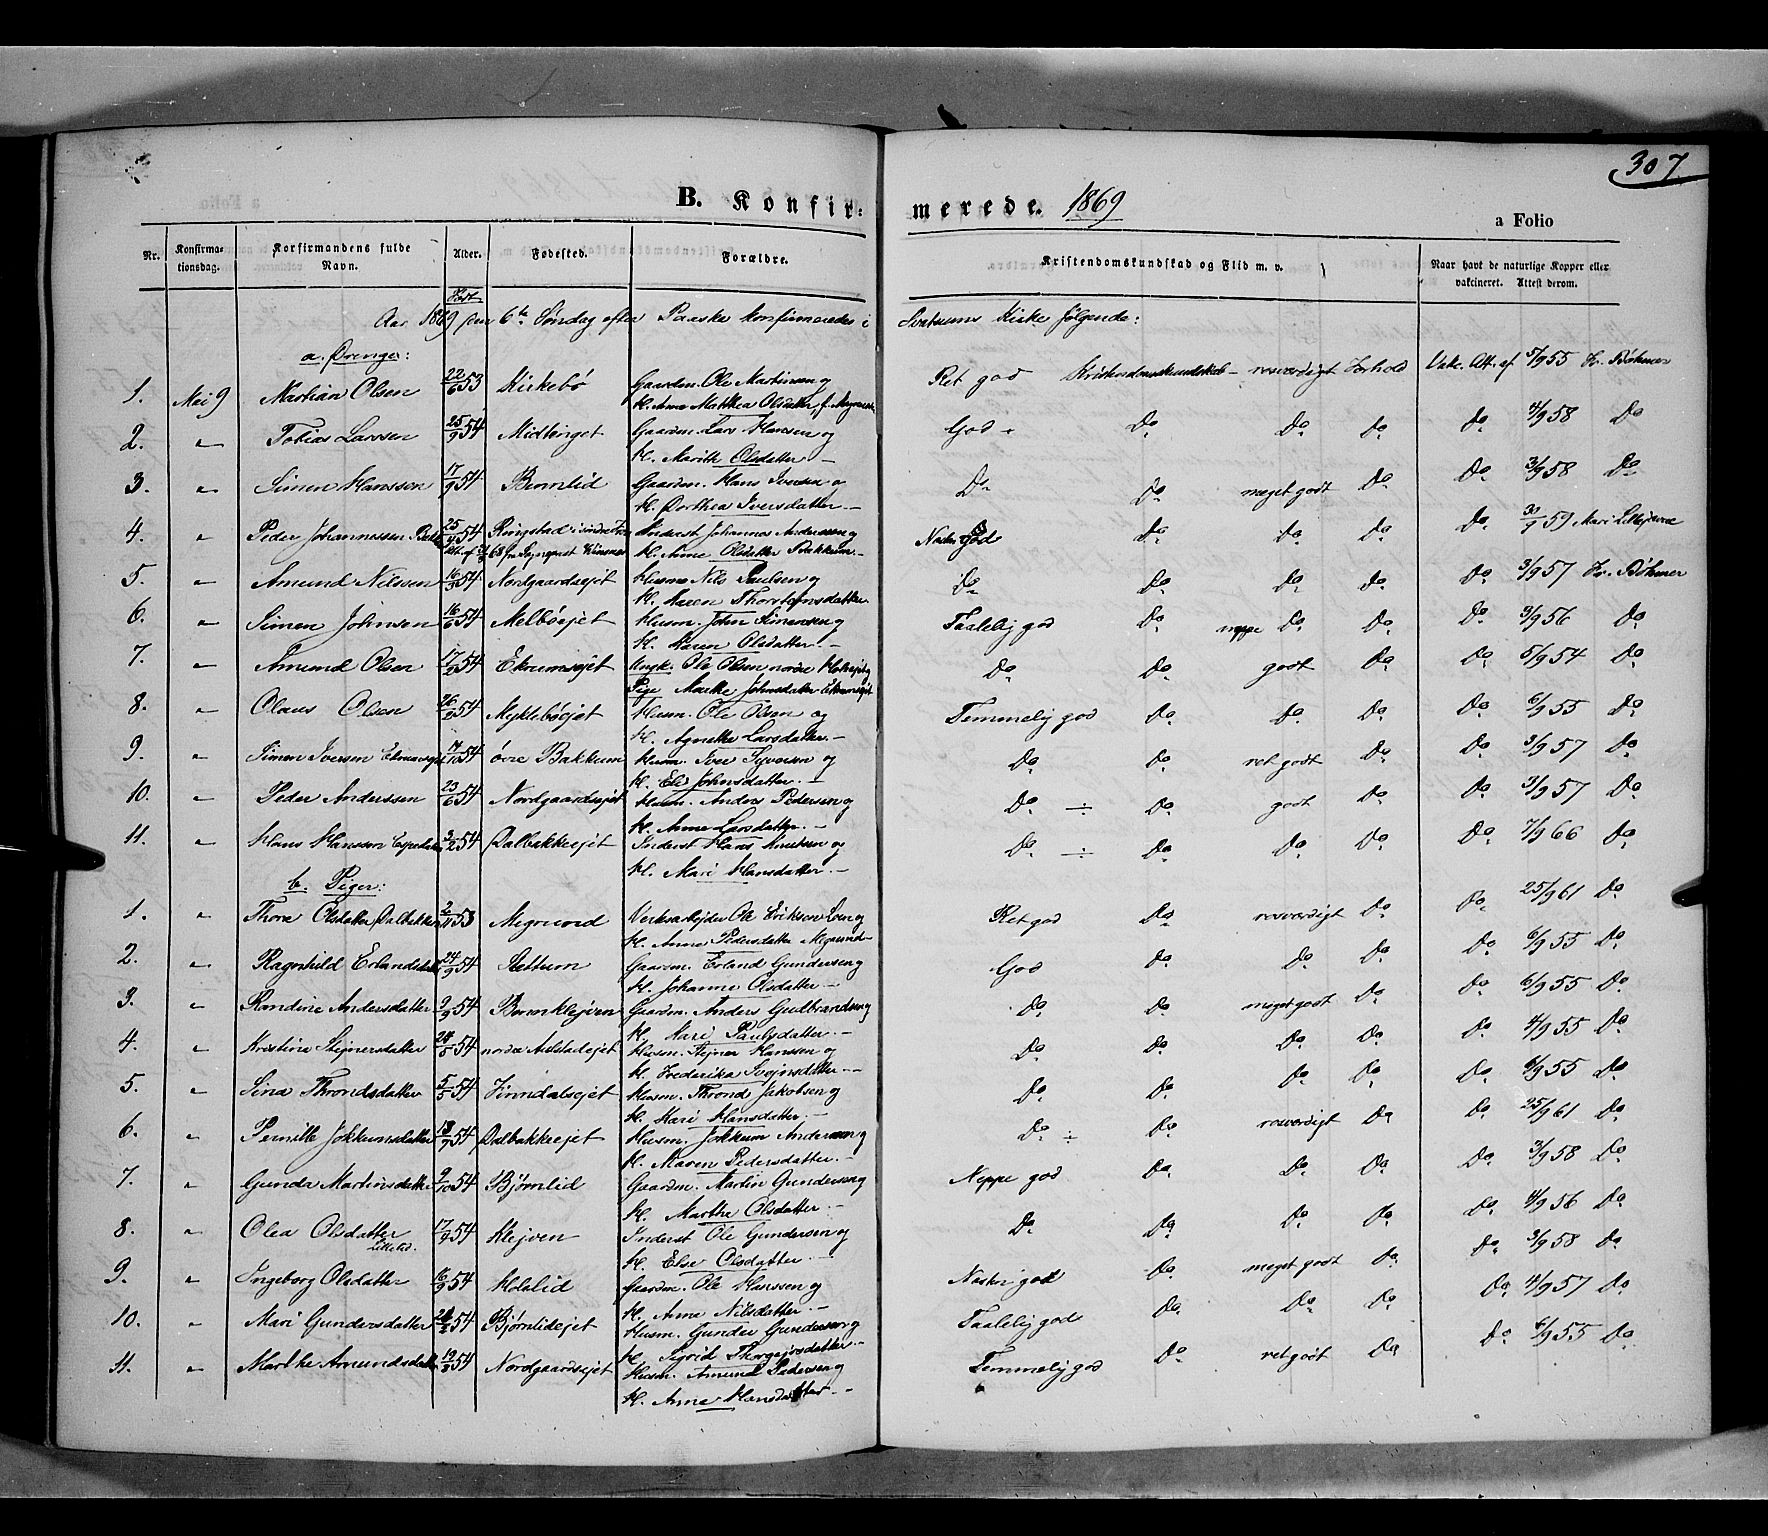 307
B. Konfirmerede. 1869
a Folio
Nr. Konfirmationsdag. Konfirmandens fulde Navn. Alder. Fødested. Forældre. Kristendomskundskab og Flid m. v. Naar havt de naturlige Kopper eller vakcineret. Attest derom.
Født
Aar 1869 den 6te Søndag efter Paaske konfirmeredes i Svatsums Kirke følgende:
a. Drenge:
1. Mai 9 Martian Olsen 22/6 53 Kirkebø Gaardm. Ole Martinsen og Ret god Kristendomskundskab - roesværdigt Forhold Vakc. Att. af 5/9 55 Fr. Bøhmer
K. Anne Matthea Olsdatter
2. " Tobias Larsen 25/9 54 Midtlinget Gaardm. Lars Hansen og God - Do Do Do Do 4/9 58 Do
K. Marith Olsdatter -
3. " Simen Hanssen 17/9 54 Bunnlid Gaardm. Hans Iversen og Do Do meget godt Do Do 3/9 58 Do
K. Dorthea Iversdatter -
4. " Peder Johannessen 25/4 54 Ringstad Inderst Johannes Anderssen og god Do Do Do Do 30/9 59 Mari
K. Anne Olsdatter Bakkum -
5. " Amund Nilssen 16/3 54 Nordgaardsejet Husm. Nils Paulsen og Do Do Do Do Do 3/9 57 Fr. Bøhmer
K. Maren Thorstensdatter
6. " Simen Johnsen 16/6 54 Melbøejet Husm. John Simensen og Taalelig god Do neppe Do Do Do 3/9 56 Do
K. Karen Olsdatter -
7. " Amund Olsen 17/2 54 Ekrumsejet Ungk. Ole Olsen nordre Do Do godt Do Do 5/9 54 Do
Pige Marthe Johnsdatter
8. " Olaus Olsen 26/2 54 Myklebøejet Husm. Ole Olsen og Temmelig god Do Do Do Do 6/9 55 Do
K. Agnethe Larsdatter -
9. " Simen Iversen 17/10 54 øvre Bakkum Husm. Iver Syversen og Do Do ret godt Do Do 3/9 57 Do
K. Eli Johnsdatter -
10. " Peder Anderssen 23/6 54 Nordgaardsejet Husm. Anders Pedersen og Do ÷ Do godt Do Do 3/9 57 Do
K. Anne Larsdatter -
11. " Hans Hanssen 3/2 54 Dalbakkeejet Inderst Hans Knutsen og Do ÷ Do Do Do Do 7/9 66 Do
K. Mari Hansdatter -
b. Piger:
1. " Thora Olsdatter Dalbakken 2/11 53 Megrund Verksarbejder Ole Eriksen Loen og Ret god Do roesværdigt Do Do 25/9 61 Do
K. Anne Pedersdatter Megrund -
2. " Ragnhild Erlandsdatter 24/9 54 Rettum Gaardm. Erland Gundersen og God Do Do Do Do 6/9 55 Do
K. Johanne Olsdatter -
3. " Randine Andersdatter 9/9 54 Brennklejven Gaardm. Anders Gudbrandsen og Do Do meget godt Do Do 6/9 55 Do
K. Mari Paulsdatter -
4. " Kristine Stejnersdatter 24/5 54 nordre Aulstadejet Husm. Stejner Hanssen og Do Do Do Do Do 4/9 55 Do
K. Frederika Svejnsdatter -
5. " Sina Throndsdatter 5/5 54 Finndalsejet Husm. Thrond Jakobsen og Do Do Do Do Do 6/9 55 Do
K. Mari Hansdatter -
6. " Pernille Jokkumsdatter 18/9 54 Dalbakkeejet Husm. Jokkum Andersen og Do ÷ Do roesværdigt Do Do 25/9 61 Do
K. Maren Pedersdatter -
7. " Gunda Martinsdatter 9/10 54 Bjørnlid Gaardm. Martin Gundersen og Neppe god Do Do Do Do 3/9 58 Do
K. Marthe Olsdatter -
8. " Olea Olsdatter 17/9 54 Klejven Inderst Ole Gundersen og Do Do Do Do Do 4/9 56 Do
K. Else Olsdatter -
9. " Ingeborg Olsdatter 16/9 54 Holslid Gaardm. Ole Hanssen og god Do meget godt Do Do 3/9 58 Do
K. Anne Nilsdatter -
10. " Mari Gundersdatter 54 Bjørnlidejet Husm. Gunder Gundersen og Taalelig god Do Do Do Do 4/9 57 Do
K. Sigrid Thorgejrsdatter -
11. " Marthe Amundsdatter 19/3 54 Nordgaardsejet Husm. Amund Pedersen og Temmelig god Do ret godt Do Do 6/9 55 Do
K. Anne Hansdatter -